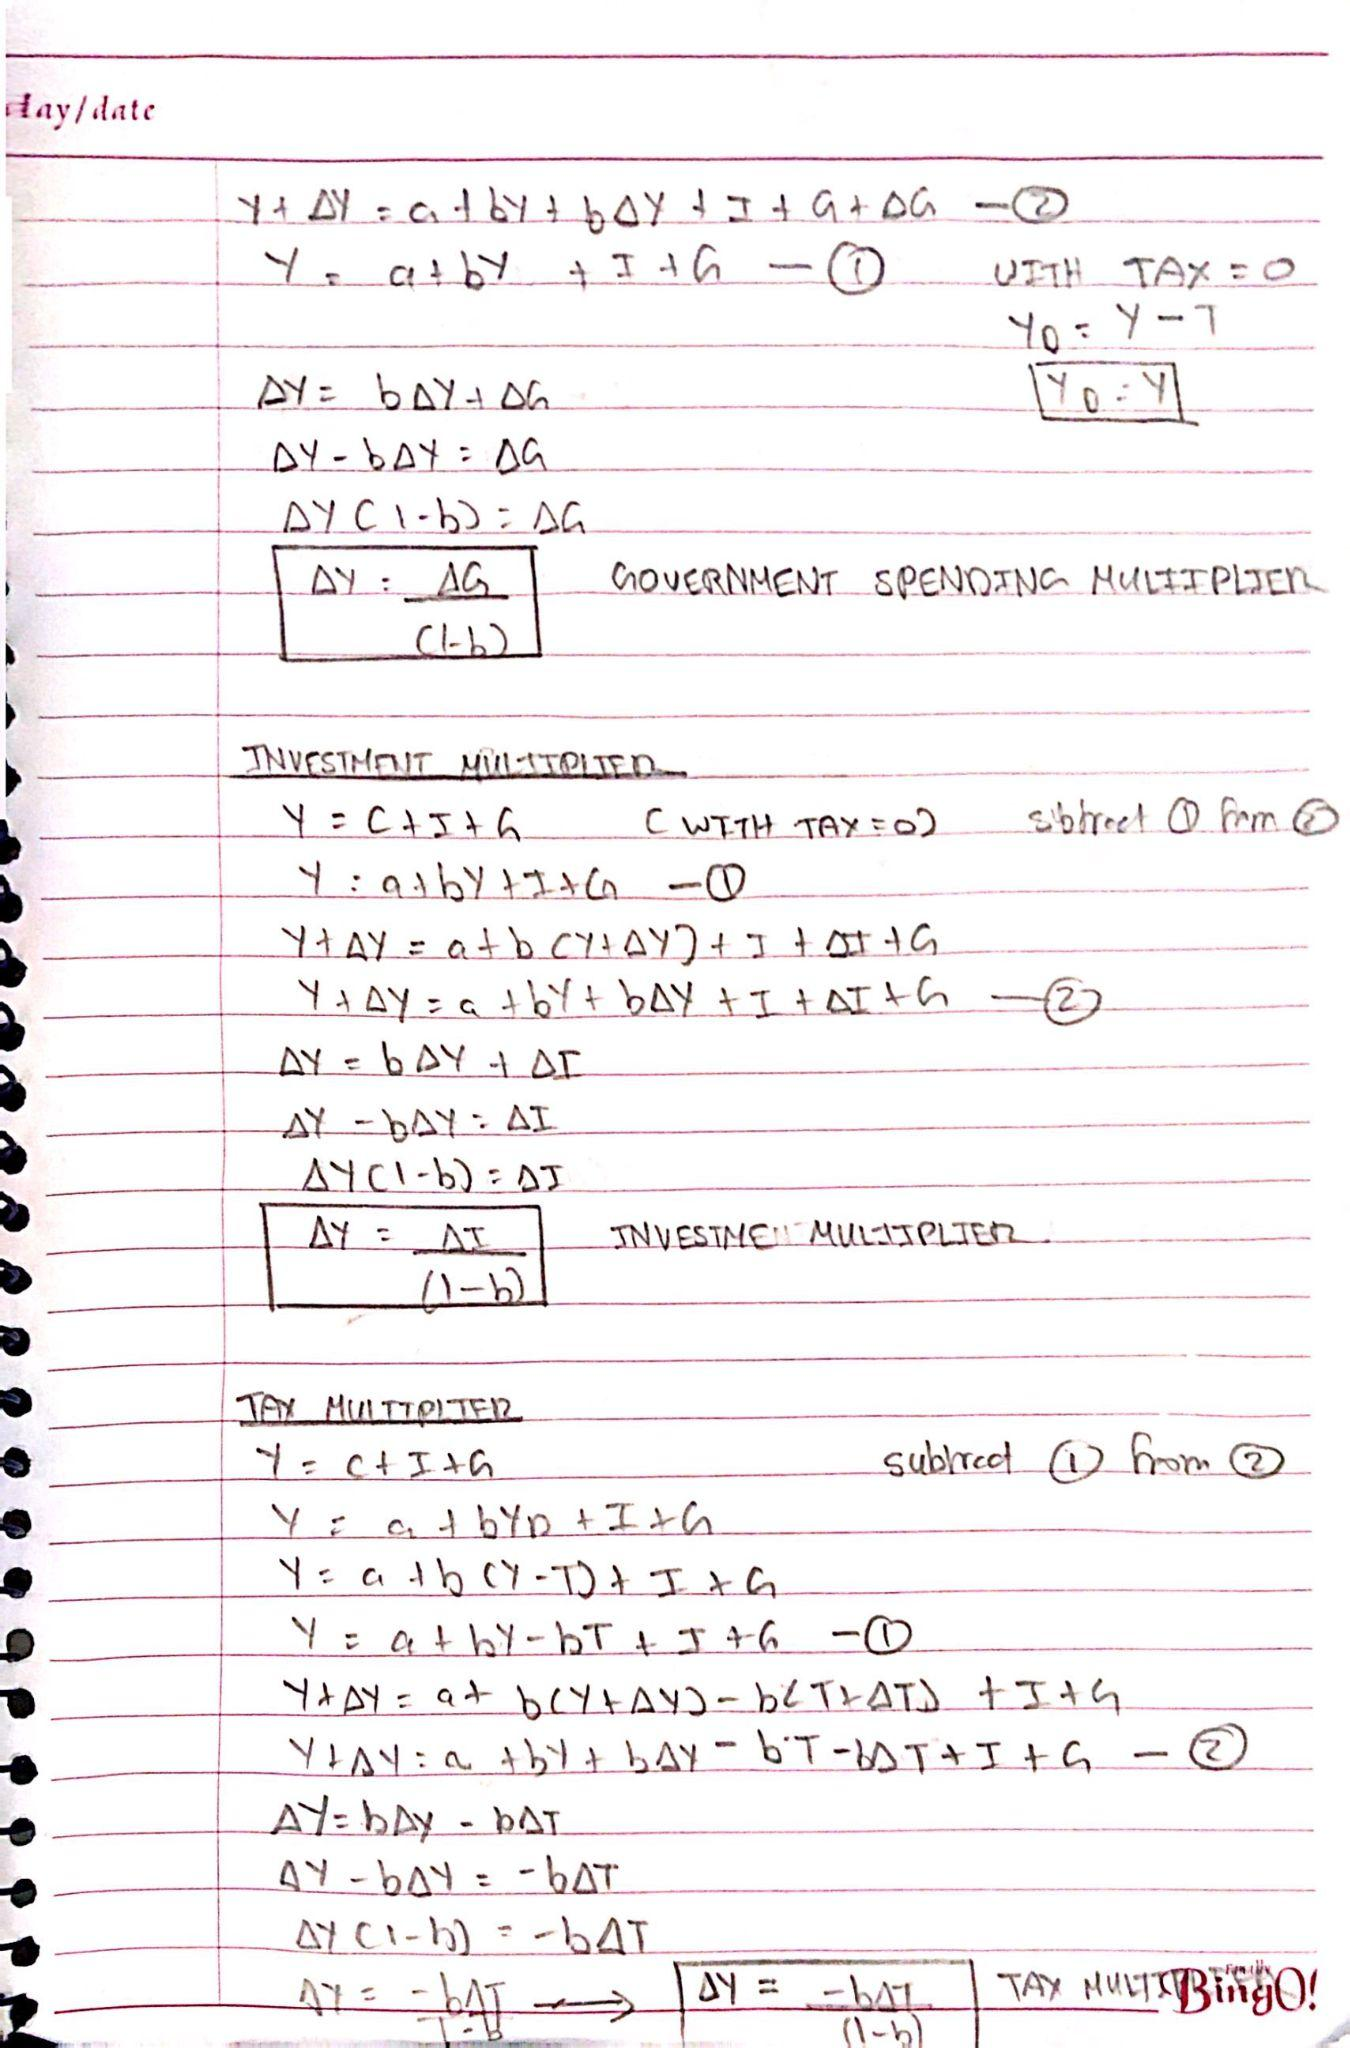 day/date
Y + ΔY = a + bY + bΔY + I + G + ΔG —②
Y = a + bY + I + G —①
WITH TAX = 0
YD = Y - T
YD = Y
ΔY = bΔY + ΔG
ΔY - bΔY = ΔG
ΔY (1-b) = ΔG
ΔY = ΔG / (1-b) GOVERNMENT SPENDING MULTIPLIER
INVESTMENT MULTIPLIER
Y = C + I + G (WITH TAX = 0) subtract ① from ②
Y = a + bY + I + G —①
Y + ΔY = a + b (Y + ΔY) + I + ΔI + G
Y + ΔY = a + bY + bΔY + I + ΔI + G —②
ΔY = bΔY + ΔI
ΔY - bΔY = ΔI
ΔY (1-b) = ΔI
ΔY = ΔI / (1-b) INVESTMENT MULTIPLIER
TAX MULTIPLIER
Y = C + I + G subtract ① from ②
Y = a + bYD + I + G
Y = a + b (Y - T) + I + G
Y = a + bY - bT + I + G —①
Y + ΔY = a + b(Y + ΔY) - b(T + ΔT) + I + G
Y + ΔY = a + bY + bΔY - bT - bΔT + I + G —②
ΔY = bΔY - bΔT
ΔY - bΔY = -bΔT
ΔY (1-b) = -bΔT
ΔY = -bΔT / 1-b → ΔY = -bΔT / (1-b) TAX MULTIPLIER
BingO!